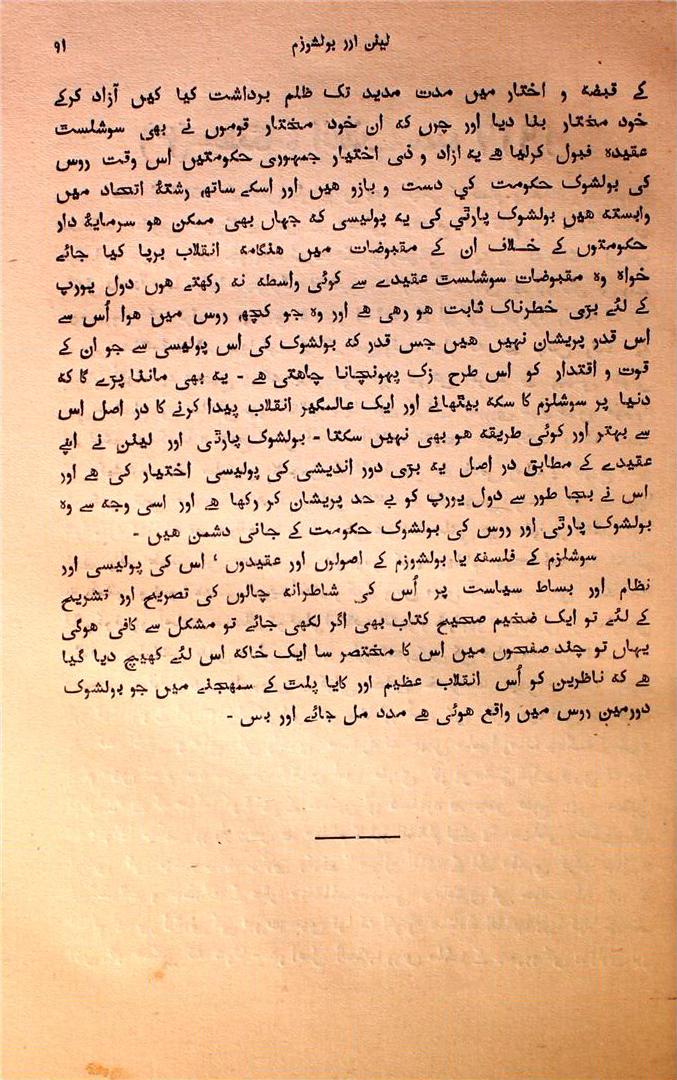 لینن اور بولشوزم ۹۱
کے قبضہ و اختار میں مدت مدید تک ظلم برداشت کیا کیں آزاد کرکے
خود مختار بنا دیا اور چوں کہ ان خود مختار قوموں نے بھی سوشلست
عقیدہ قبول کرلیا ہے یہ ازاد و ذی اختیار جمہوری حکومتیں اس وقت روس
کی بولشوک حکومت کی دست و بازو ہیں اور اسکے ساتھ رشتۂ اتحاد میں
وابستہ ہیں بولشوک پارٹی کی یہ پولیسی کہ جہاں بھی ممکن ہو سرمایۂ دار
حکومتوں کے خلاف ان کے مقبوضات میں ہنگامہ انقلاب برپا کیا جائے
خواہ وہ مقبوضات سوشلست عقیدے سے کوئی واسطہ نہ رکھتے ہوں دول یورپ
کے لئے بڑی خطرناک ثابت ہو رہی ہے اور وہ جو کچھ روس میں ہوا اُس سے
اس قدر پریشان نہیں ہیں جس قدر کہ بولشوک کی اس پولیسی سے جو ان کے
قوت و اقتدار کو اس طرح زک پہونچانا چاہتی ہے - یہ بھی ماننا پڑے گا کہ
دنیا پر سوشلزم کا سکہ بیٹھانے اور ایک عالمگیر انقلاب پیدا کرنے کا در اصل اس
سے بہتر اور کوئی طریقہ ہو بھی نہیں سکتا - بولشوک پارٹی اور لینن نے اپنے
عقیدے کے مطابق در اصل یہ بڑی دور اندیشی کی پولیسی اختیار کی ہے اور
اس نے بجا طور سے دول یورپ کو بے حد پریشان کر رکھا ہے اور اسی وجہ سے وہ
بولشوک پارٹی اور روس کی بولشوک حکومت کے جانی دشمن ہیں -
سوشلزم کے فلسفہ یا بولشوزم کے اصولوں اور عقیدوں ، اس کی پولیسی اور
نظام اور بساط سیاست پر اُس کی شاطرانہ چالوں کی تصریح اور تشریح
کے لئے تو ایک ضخیم صحیح کتاب بھی اگر لکھی جائے تو مشکل سے کافی ہوگی
یہاں تو چند صفحوں میں اس کا مختصر سا ایک خاکہ اس لئے کھینچ دیا گیا
ہے کہ ناظرین کو اُس انقلاب عظیم اور کایا پلٹ کے سمجھنے میں جو بولشوک
دورمیں روس میں واقع ہوئی ہے مدد مل جائے اور بس -